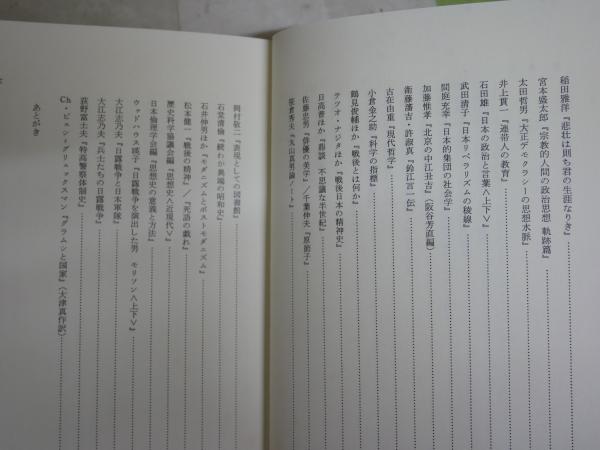 稲田雅洋『悲壮は則ち君の生涯なりき』
宮本盛太郎『宗教的人間の政治思想 軌跡篇』
太田哲男『大正デモクラシーの思想水脈』
井上貫一『連帯人の教育』
石田雄『日本の政治と言葉〈上下〉』
武田清子『日本リベラリズムの稜線』
間庭充幸『日本的集団の社会学』
加藤惟孝『北京の中江丑吉』(阪谷芳直編)
衛藤瀋吉・許淑真『鈴江言一伝』
古在由重『現代哲学』
小倉金之助『科学の指標』
鶴見俊輔ほか『戦後とは何か』
テツオ・ナジタほか『戦後日本の精神史』
日高普ほか『鼎談 不思議な半世紀』
佐藤忠男『俳優の美学』/千葉伸夫『原節子』
笹倉秀夫『丸山真男論ノート』
岡村敬二『表現としての図書館』
石堂清倫『続わが異端の昭和史』
石井伸男ほか『モダニズムとポストモダニズム』
松本健一『戦後の精神』/『死語の戯れ』
歴史科学協議会編『思想史〈近現代〉』
日本倫理学会編『思想史の意義と方法』
ウッドハウス暎子『日露戦争を演出した男 モリソン〈上下〉』
大江志乃夫『日露戦争と日本軍隊』
大江志乃夫『兵士たちの日露戦争』
荻野富士夫『特高警察体制史』
Ch・ビュシ=グリュックスマン『グラムシと国家』(大津真作訳)
あとがき